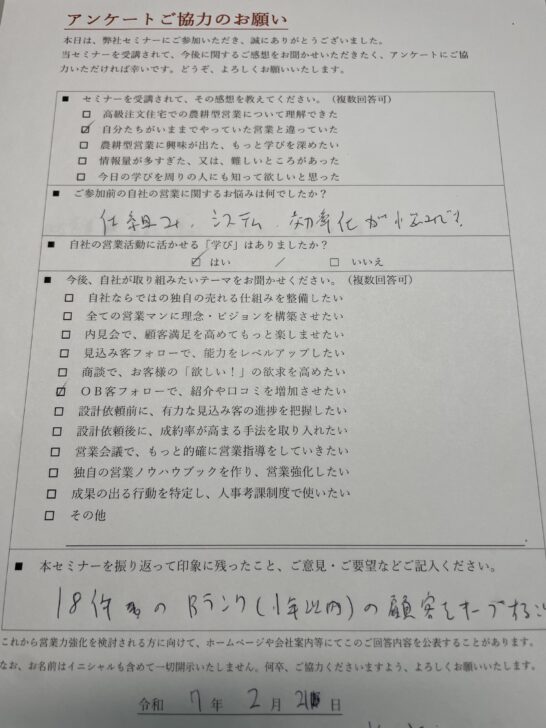 アンケートご協力のお願い
本日は、弊社セミナーにご参加いただき、誠にありがとうございました。
当セミナーを受講されて、今後に関するご感想をお聞かせいただきたく、アンケートにご協
力いただければ幸いです。どうぞ、よろしくお願いいたします。
■ セミナーを受講されて、その感想を教えてください。（複数回答可）
□ 高級注文住宅での農耕型営業について理解できた
☑ 自分たちがいままでやっていた営業と違っていた
□ 農耕型営業に興味が出た、もっと学びを深めたい
□ 情報量が多すぎた、又は、難しいところがあった
□ 今日の学びを周りの人にも知って欲しいと思った
■ ご参加前の自社の営業に関するお悩みは何でしたか？
仕組み、システム、効率化が悩みです
■ 自社の営業活動に活かせる「学び」はありましたか？
☑ はい ／ □ いいえ
■ 今後、自社が取り組みたいテーマをお聞かせください。（複数回答可）
□ 自社ならではの独自の売れる仕組みを整備したい
□ 全ての営業マンに理念・ビジョンを構築させたい
□ 内見会で、顧客満足を高めてもっと楽しませたい
□ 見込み客フォローで、能力をレベルアップしたい
□ 商談で、お客様の「欲しい！」の欲求を高めたい
☑ ＯＢ客フォローで、紹介や口コミを増加させたい
□ 設計依頼前に、有力な見込み客の進捗を把握したい
□ 設計依頼後に、成約率が高まる手法を取り入れたい
□ 営業会議で、もっと的確に営業指導をしていきたい
□ 独自の営業ノウハウブックを作り、営業強化したい
□ 成果の出る行動を特定し、人事考課制度で使いたい
□ その他
■ 本セミナーを振り返って印象に残ったこと、ご意見・ご要望などご記入ください。
18件 の Bランク(1年以内)の顧客をキープする
これから営業力強化を検討される方に向けて、ホームページや会社案内等にてこのご回答内容を公表することがあります。
なお、お名前はイニシャルも含めて一切開示いたしません。何卒、ご協力くださいますよう、よろしくお願いいたします。
令和 7 年 2 月 21 日